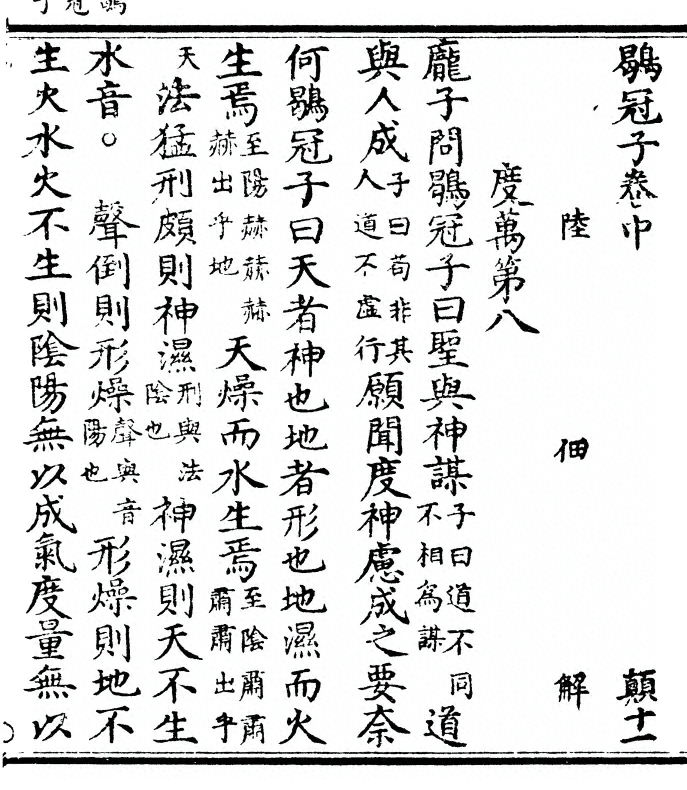 鶡冠子卷中 顛十一
陸 佃 解
度萬第八
龐子問鶡冠子曰聖與神謀子曰道不同不相為謀道
與人成子曰苟非其人道不虛行願聞度神慮成之要奈
何鶡冠子曰天者神也地者形也地濕而火
生焉至陽赫赫赫赫出乎地天燥而水生焉至陰肅肅肅肅出乎
天法猛刑頗則神濕刑與法陰也神濕則天不生
水音○聲倒則形燥聲與音陽也形燥則地不
生火水火不生則陰陽無以成氣度量無以